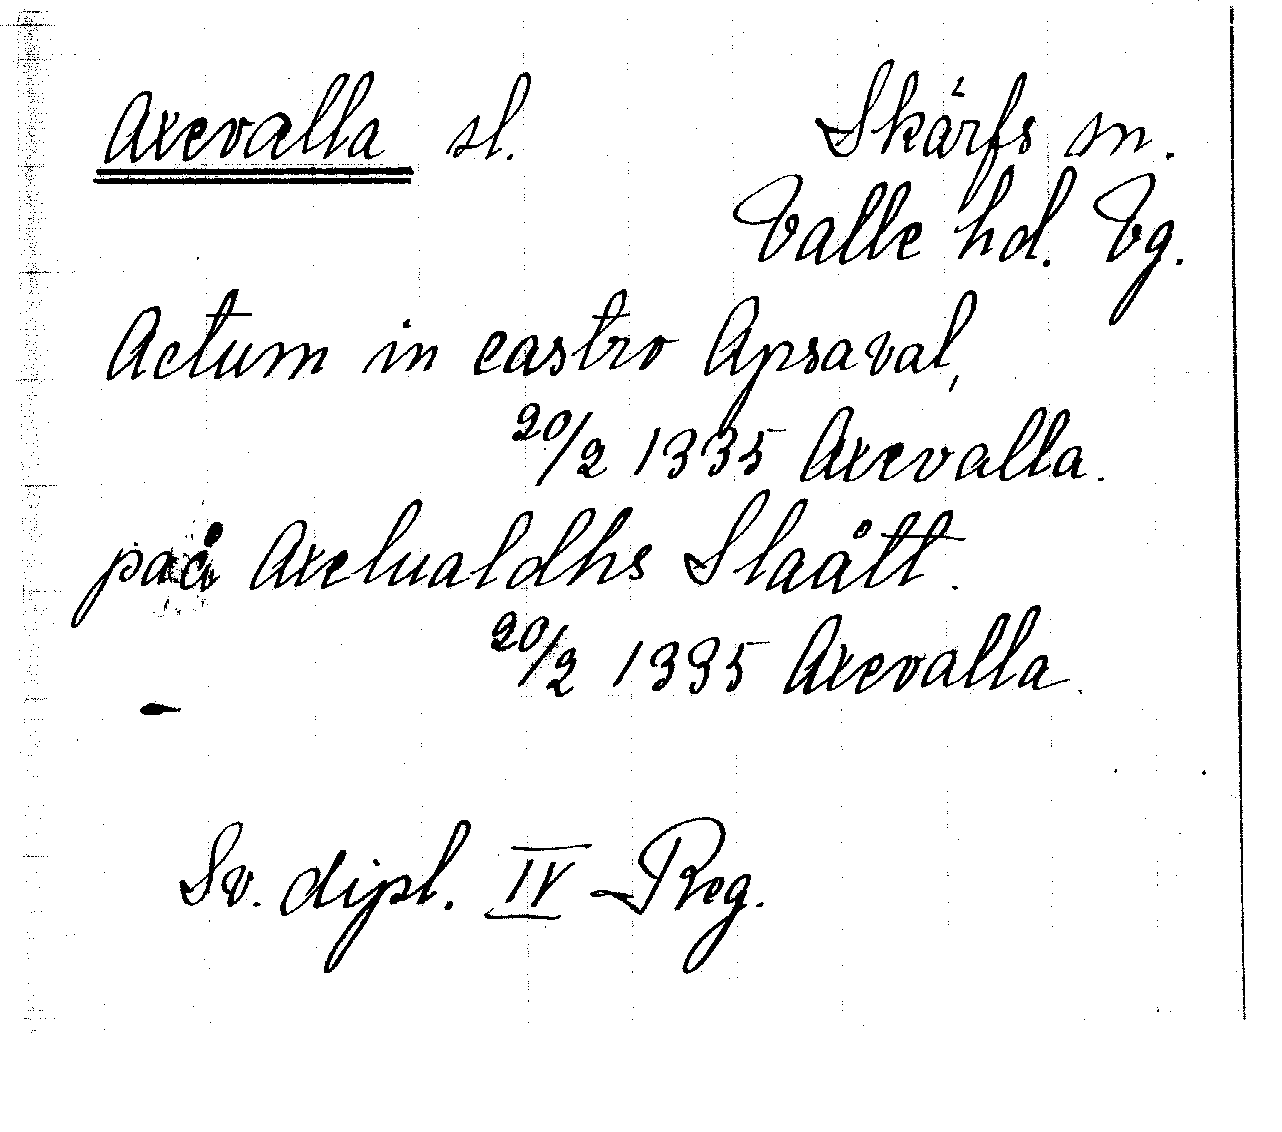 Axevalla sl. Skärfs sn.
Valle hd. Vg.
Actum in castro Apsaval,
20/2 1335 Axevalla.
paå Axelualdhs Slaått.
20/2 1335 Axevalla.
Sv. dipl. IV Reg.